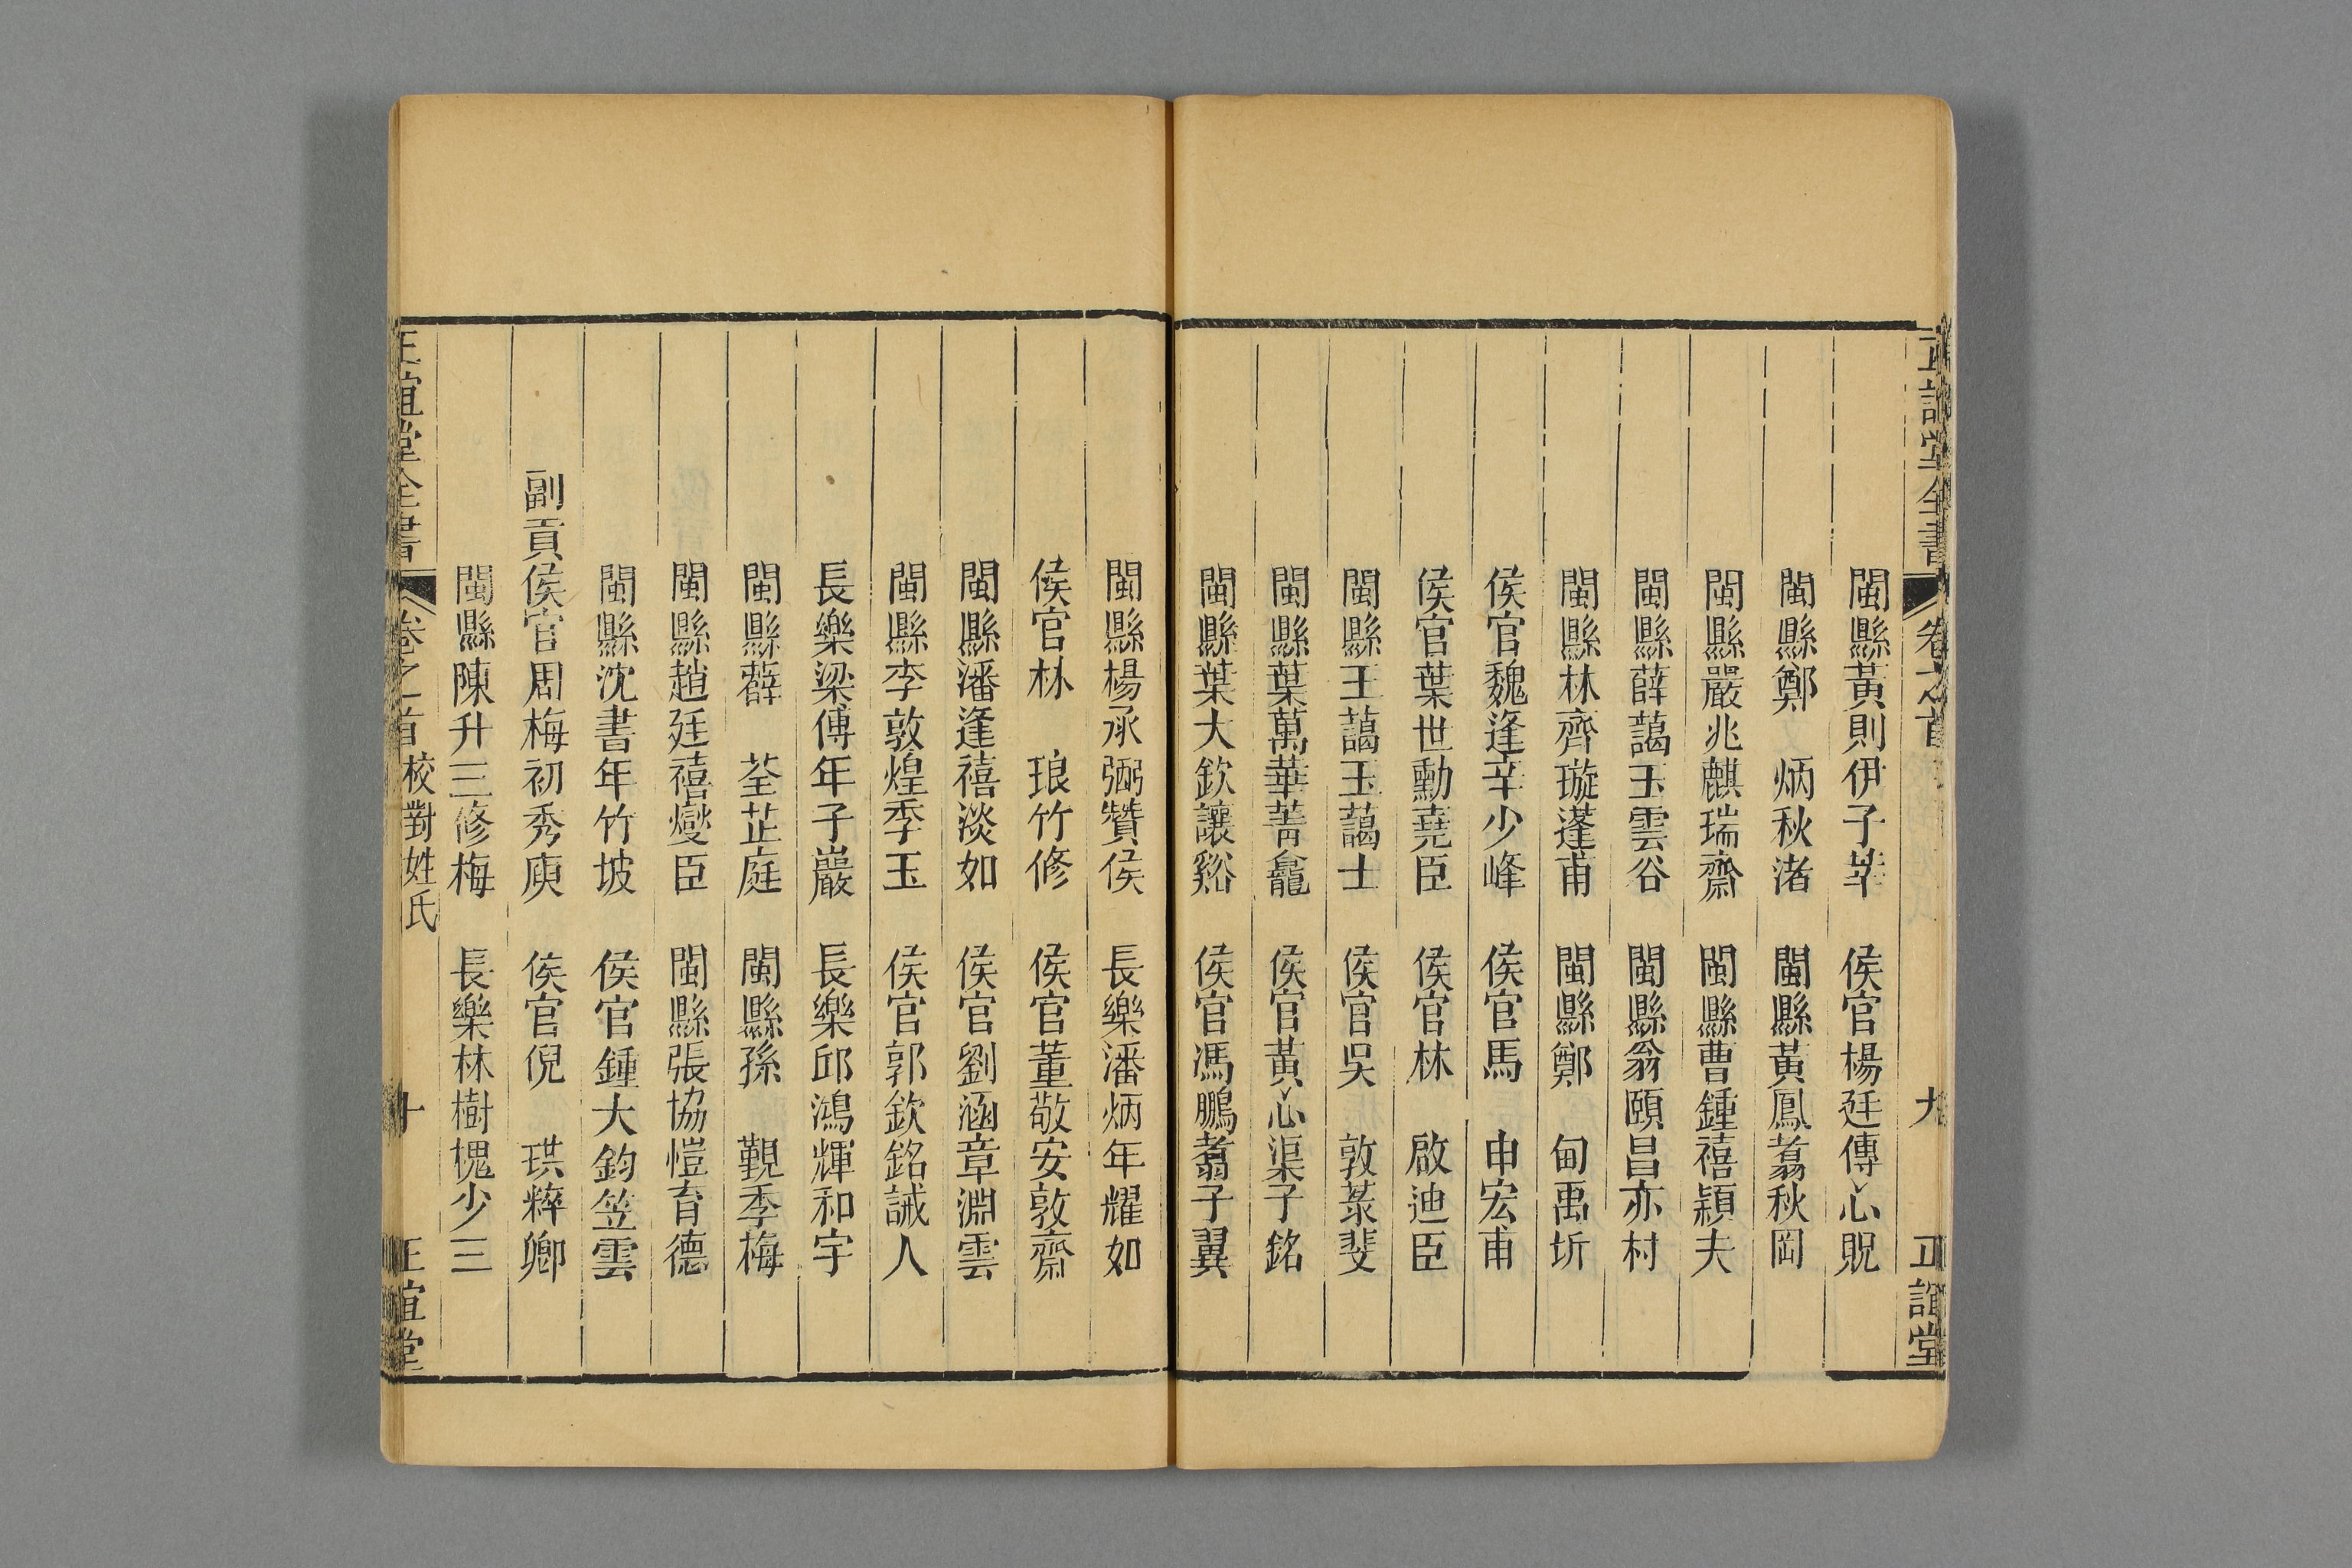 正誼堂全書 卷之首 九 正誼堂
閩縣黃則伊子莘 侯官楊廷傳心貺
閩縣鄭 炳秋渚 閩縣黃鳳翥秋岡
閩縣嚴兆麒瑞齋 閩縣曹鍾禧穎夫
閩縣薛藹玉雲谷 閩縣翁頤昌亦村
閩縣林齊璇蓬甫 閩縣鄭 甸禹圻
侯官魏逢辛少峰 侯官馬 申宏甫
侯官葉世勳堯臣 侯官林 啟迪臣
閩縣王藹玉藹士 侯官吳 敦菉斐
閩縣葉萬華菁龕 侯官黃心渠子銘
閩縣葉大欽讓谿 侯官馮鵬翥子翼
閩縣楊承弼贊侯 長樂潘炳年耀如
侯官林 琅竹修 侯官董敬安敦齋
閩縣潘逢禧淡如 侯官劉涵章淵雲
閩縣李敦煌季玉 侯官郭欽銘誠人
長樂梁傅年子巖 長樂邱鴻輝和宇
閩縣薛 荃芷庭 閩縣孫 覲季梅
閩縣趙廷禧燮臣 閩縣張協愷育德
閩縣沈書年竹坡 侯官鍾大鈞笠雲
副貢侯官周梅初秀庾 侯官倪 珙粹卿
閩縣陳升三修梅 長樂林樹槐少三
正誼堂全書 卷之首 校對姓氏 十 正誼堂